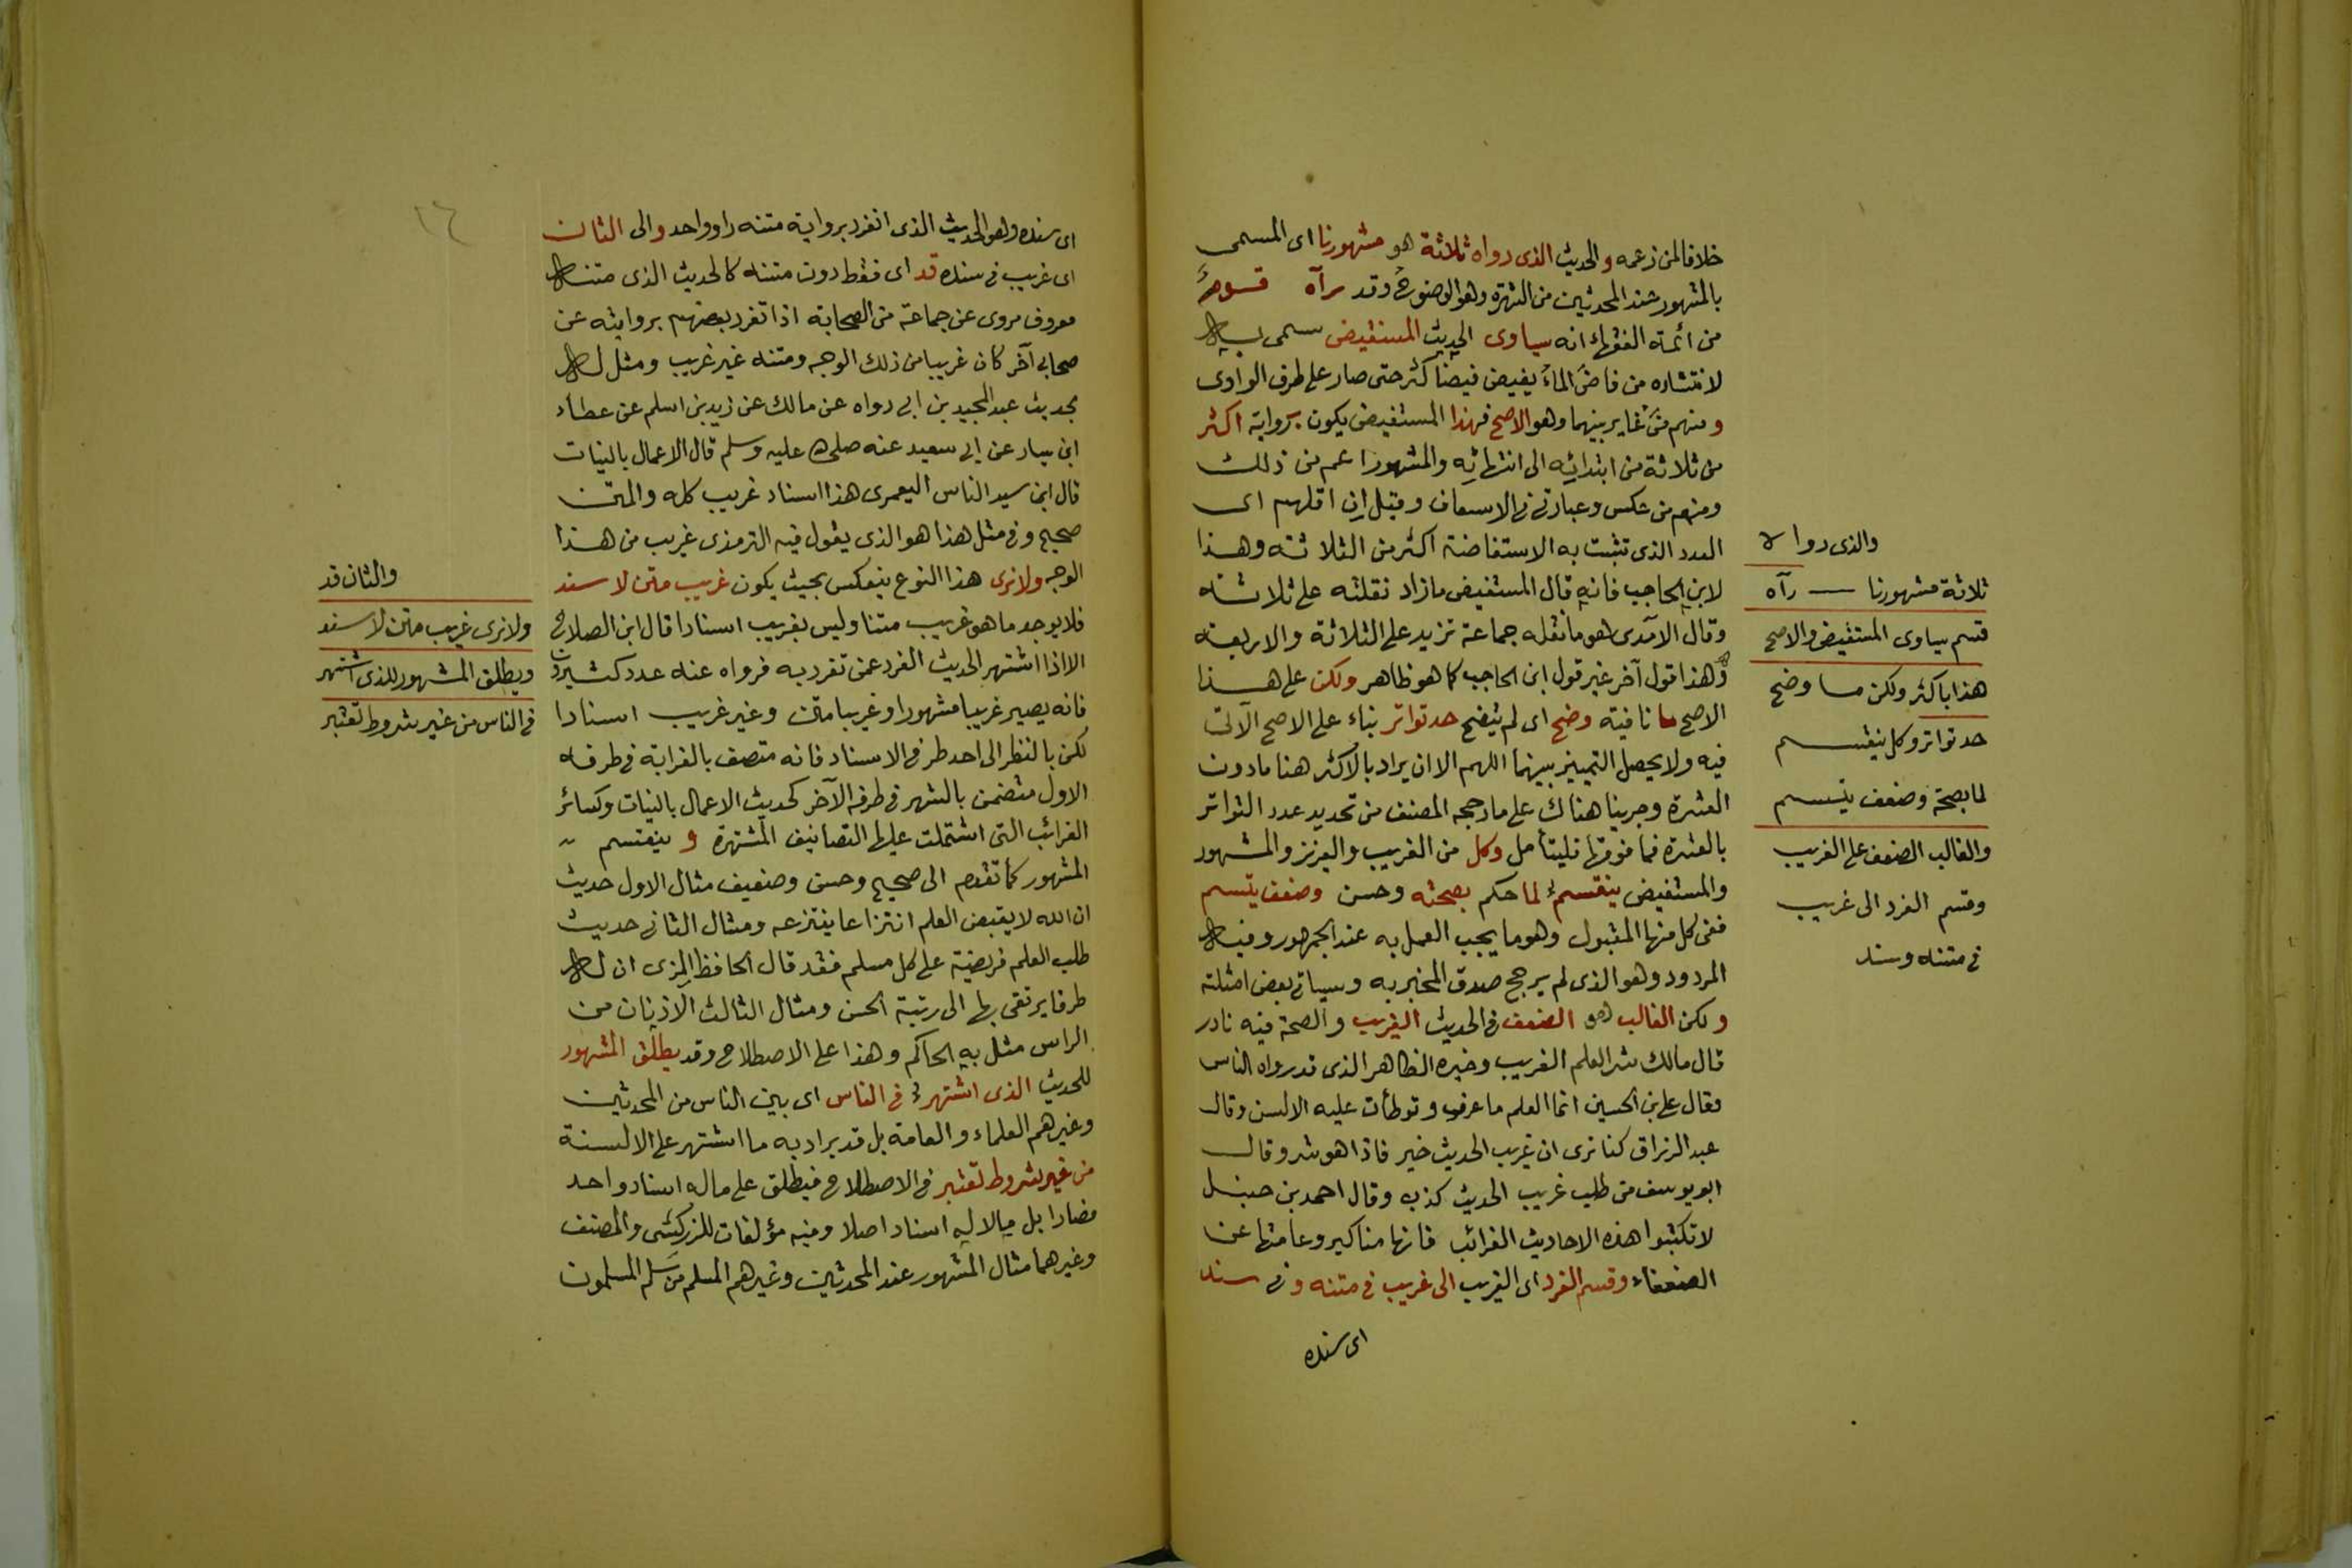 خلافا لمن زعمه والحديث الذى رواه ثلاثة هو مشهورنا اى المسمى
بالمشهور عند المحدثين من الشهرة وهو الوضوح وقد رآه قسوم
من ائمة الفقهاء انه يساوى الحديث المستفيض سمى به
لانتشاره من فاض الماء يفيض فيضا كثر حتى صار على طرف الوادى
ومنهم من غاير بينهما وهو الاصح فهذا المستفيض يكون برواية اكثر
من ثلاثة من ابتدائه الى انتهائه والمشهور اعم من ذلك
ومنهم من عكس وعبارتى فى الاسعاف وقيل ان اقلهم اى
العدد الذى تثبت به الاستفاضة اكثر من الثلاثة وهذا
لابن الحاجب فانه قال المستفيض مازاد نقلته على ثلاثة
وقال الآمدى هو ما نقله جماعة تزيد على الثلاثة والاربعة
وهذا قول آخر غير قول ابن الحاجب كما هو ظاهر ولكن على هذا
الاصح ما نافية وضح اى لم يتضح حد تواتر بناء على الاصح الآتى
فيه ولا يحصل التمييز بينهما اللهم الا ان يراد بالاكثر هنا مادون
العشرة وجرينا هناك على مارجحه المصنف من تحديد عدد التواتر
بالعشرة فما فوقها فليتأمل وكل من الغريب والعزيز والمشهور
والمستفيض ينقسم لما حكم بصحته وحسن وضعف يتسم
ففى كل منها المقبول وهو ما يجب العمل به عند الجمهور وفيه
المردود وهو الذى لم يرجح صدق المخبر به وسياتى بعض امثلته
ولكن الغالب هو الضعف فى الحديث الغريب والصحة فيه نادر
قال مالك شر العلم الغريب وخيره الظاهر الذى قد رواه الناس
وقال على بن الحسين انما العلم ما عرف وتوطأت عليه الالسن وقال
عبد الرزاق كنا نرى ان غريب الحديث خير فاذا هو شر وقال
ابو يوسف من طلب غريب الحديث كذب وقال احمد بن حنبل
لا تكتبوا هذه الاحاديث الغرائب فانها مناكير وعامتها عن
الضعفاء وقسم الفرد اى الغريب الى غريب فى متنه وفى سند
اى سنده
والذى رواه
ثلاثة مشهورنا رآه
قسم يساوى المستفيض والاصح
هذا باكثر ولكن ما وضح
حد تواتر وكل ينقسم
لما بصحة وضعف يتسم
والغالب الضعف على الغريب
وقسم الفرد الى غريب
فى متنه وسند
١٦
اى سنده وهو الحديث الذى انفرد برواية متنه راو واحد والى الثان
اى غريب فى سنده قد اى فقط دون متنه كالحديث الذى متنه
معروف مروى عن جماعة من الصحابة اذا تفرد بعضهم بروايته عن
صحابى آخر كان غريبا من ذلك الوجه ومتنه غير غريب ومثل له
بحديث عبد المجيد بن ابى رواه عن مالك عن زيد بن اسلم عن عطاء
ابن يسار عن ابى سعيد عنه صلى الله عليه وسلم قال الاعمال بالنيات
قال ابن سيد الناس اليعمرى هذا اسناد غريب كله والمتن
صحيح وفى مثل هذا هو الذى يقول فيه الترمذى غريب من هذا
الوجه ولا نرى هذا النوع ينعكس بحيث يكون غريب متن لا سند
فلا يوجد ما هو غريب متنا وليس بغريب اسنادا قال ابن الصلاح
الا اذا اشتهر الحديث الفرد عمن تفرد به فرواه عنه عدد كثيرون
فانه يصير غريبا مشهورا وغريبا متن وغير غريب اسنادا
لكن بالنظر الى احد طرفى الاسناد فانه متصف بالغرابة فى طرفه
الاول متضمن بالشهر فى طرفه الآخر كحديث الاعمال بالنيات وكسائر
الغرائب التى اشتملت عليها التصانيف المشتهرة و ينقسم
المشهور كما تقدم الى صحيح وحسن وضعيف مثال الاول حديث
ان الله لا يقبض العلم انتزاعا ينتزعه ومثال الثانى حديث
طلب العلم فريضة على كل مسلم فقد قال الحافظ المزى ان له
طرقا يرتقى بها الى رتبة الحسن ومثال الثالث الاذنان من
الراس مثل به الحاكم وهذا على الاصطلاح وقد يطلق المشهور
للحديث الذى اشتهر فى الناس اى بين الناس من المحدثين
وغيرهم العلماء والعامة بل قد يراد به ما اشتهر على الالسنة
من غير شروط تعتبر فى الاصطلاح فيطلق على ماله اسناد واحد
فصاعدا بل مالا له اسناد اصلا وفيه مؤلفات للزركشى والمصنف
وغيرهما مثال المشهور عند المحدثين وغيرهم المسلم من سلم المسلمون
والثان قد
ولا نرى غريب متن لا سند
ويطلق المشهور للذى اشتهر
فى الناس من غير شروط تعتبر